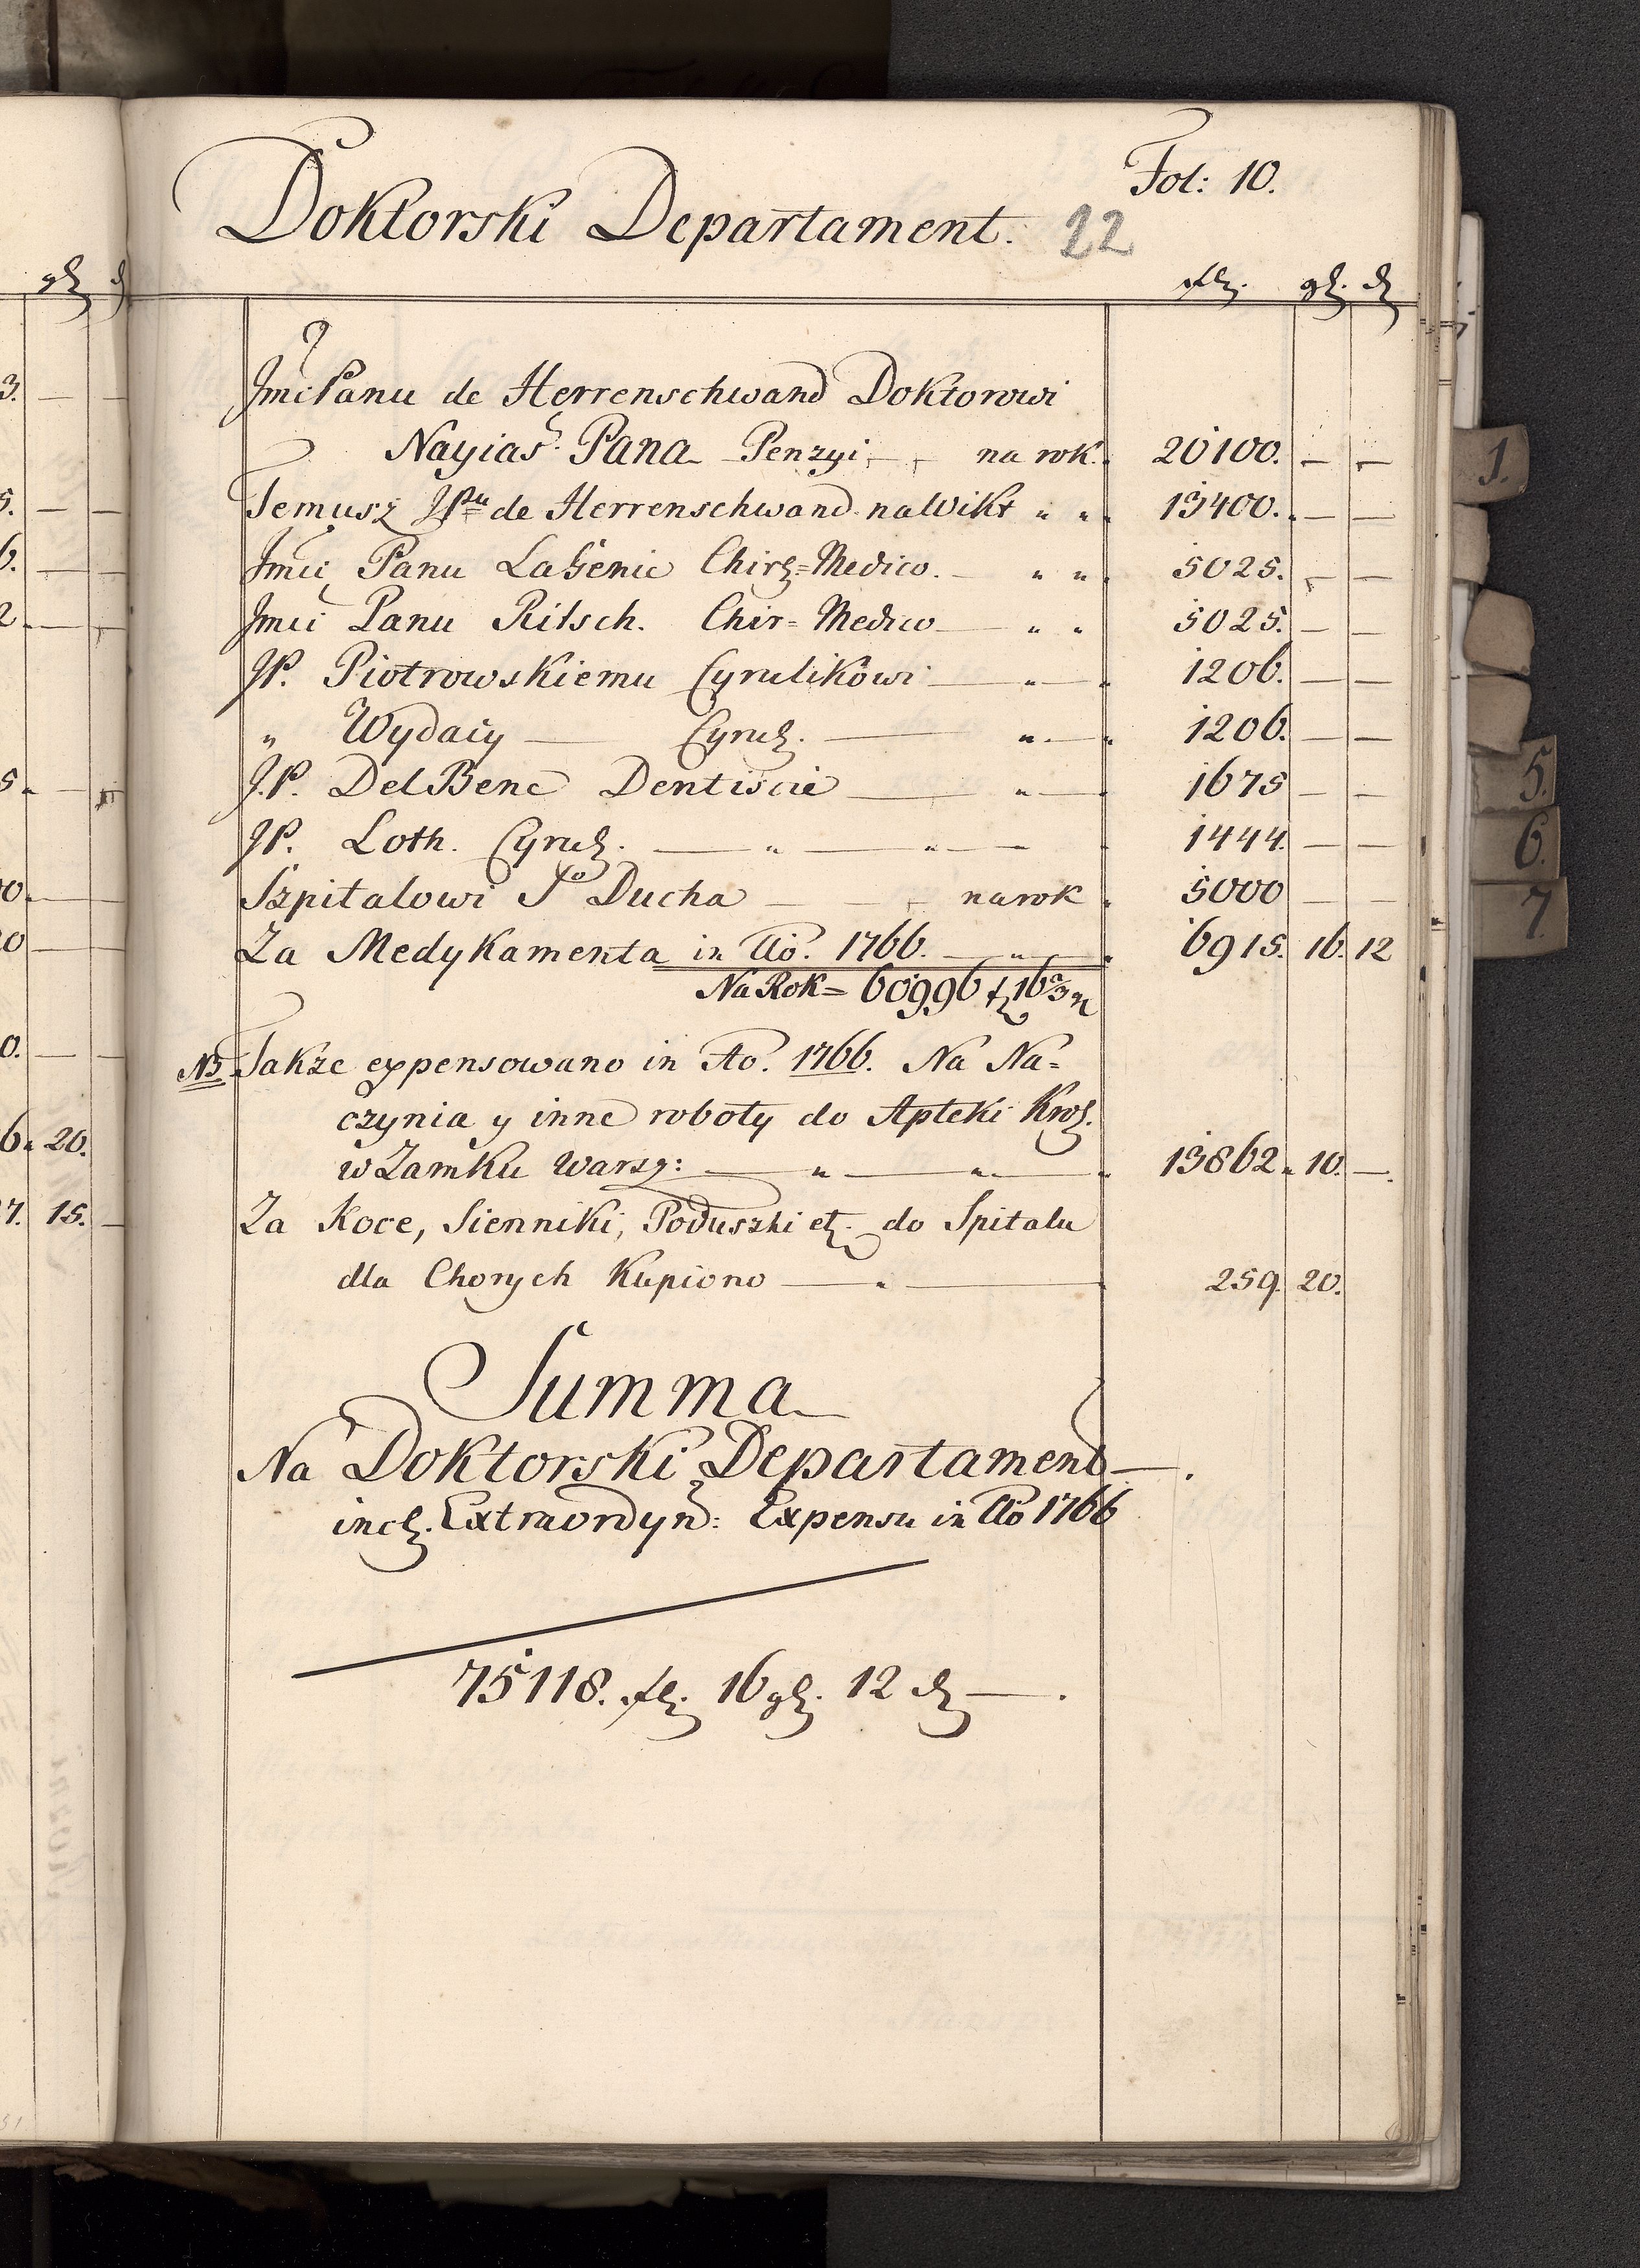 Fol: 10.
Doktorski Departament. 22
fl. gl. d
Jmć Panu de Herrenschwand Doktorowi
Nayiaś. Pana Penzyi na rok. 20100. — —
Temusz JPnu de Herrenschwand na Wikt " " 13400. — —
Jmći Panu LaGenie Chir=Medico. — " " 5025. — —
Jmći Panu Ritsch. Chir=Medico — " " 5025. — —
JP. Piotrowskiemu Cyrulikowi — " — 1206. — —
" Wydaiy — Cyrul. — " — " 1206. — —
J.P. DelBene Dentiscie — " — 1675 — —
JP. Loth. Cyrul. — " — " — 1444. — —
Szpitalowi Sgo Ducha — — na rok 5000 — —
Za Medykamenta in Ao. 1766. — " — 6915. 16. 12
Na Rok = 60996 fl 16 2/3
NB Takze expensowano in Ao. 1766. Na Na=
czynia y inne roboty do Apteki Krol.
w Zamku Warsz: — " — " — 13862. 10. —.
Za Koce, Sienniki, Poduszki etc. do Spitalu
dla Chorych Kupiono — " — 259. 20.
Summa
Na Doktorski Departament — .
incl. Extraordyn: Expensu in Ao 1766
75118. fl. 16 gl. 12 d — .
gl d
3. — —
5. — —
6. — —
2. — —
5. —
00. —
0 —
0. —
6. 20.
7. 15. —
1.
5.
6.
7.